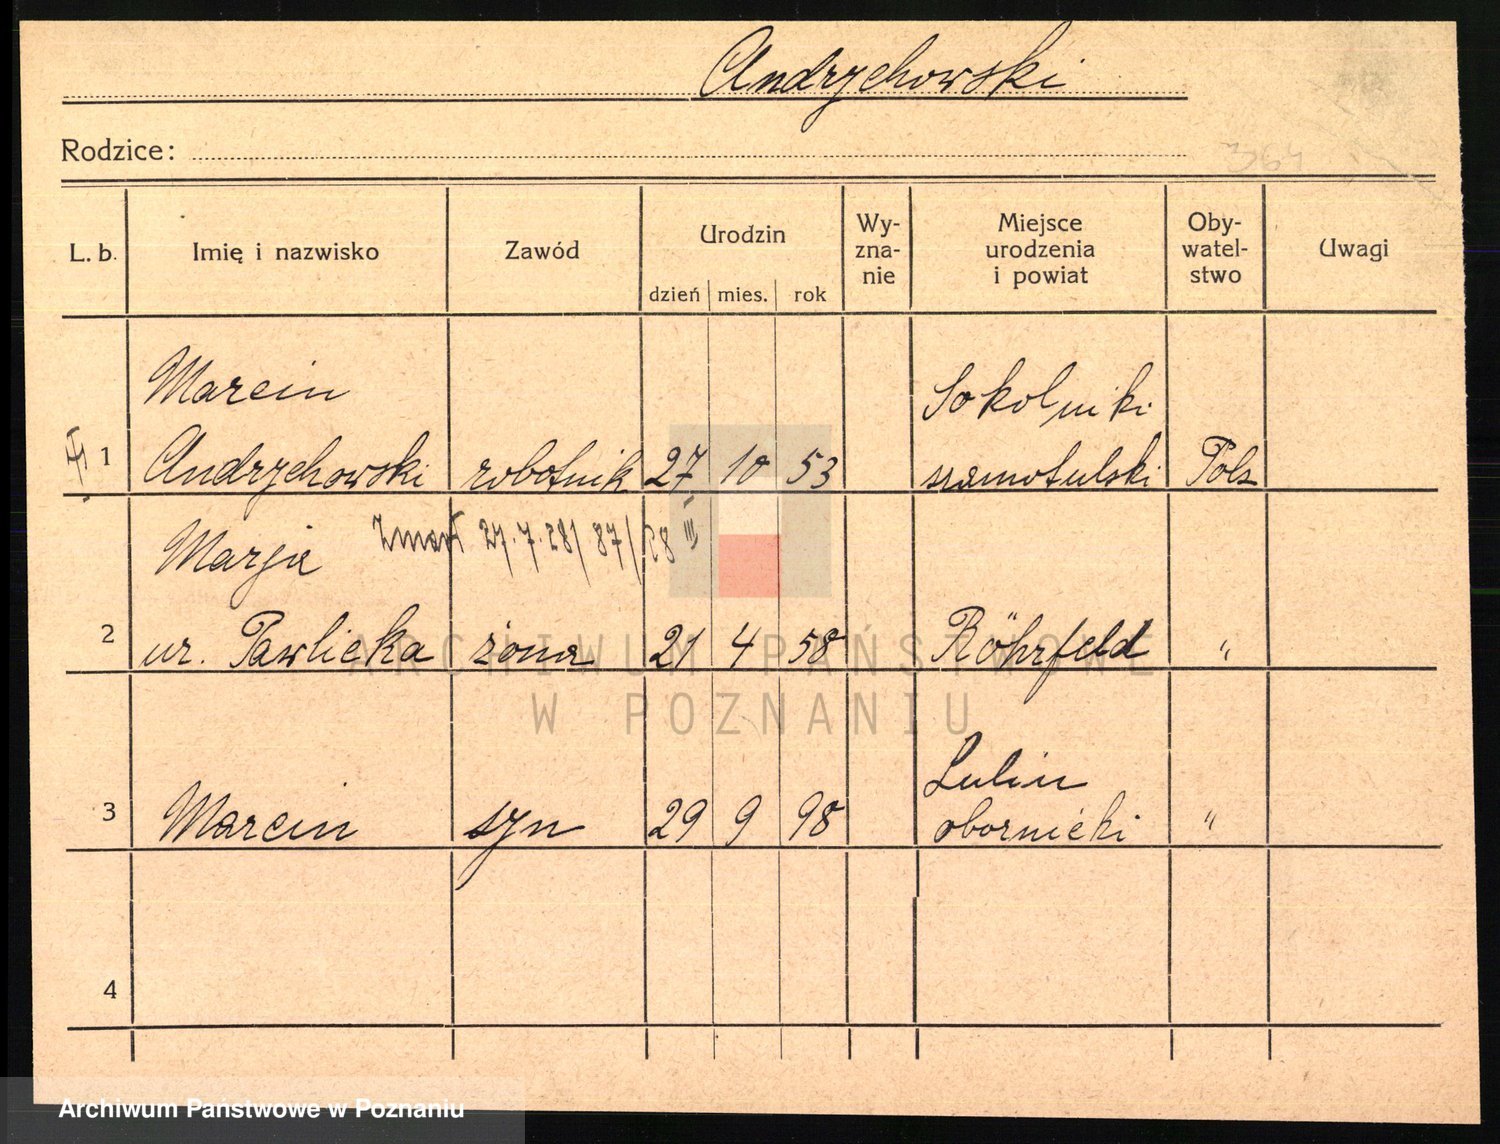 Andrzchowski
Rodzice:
364
L. b.
Imię i nazwisko
Zawód
Urodzin
dzień mies. rok
Wy-
zna-
nie
Miejsce
urodzenia
i powiat
Oby-
watel-
stwo
Uwagi
Marcin Sokolniki
1 Andrzchowski robotnik 27 10 53 szamotulski Pols
Zmarł 27.7.28/ 87/28 III
Marja
2 ur. Pawlicka żona 21 4 58 Röhrfeld "
Lulin
3 Marcin syn 29 9 98 obornicki "
4
ARCHIWUM PAŃSTWOWE
W POZNANIU
Archiwum Państwowe w Poznaniu